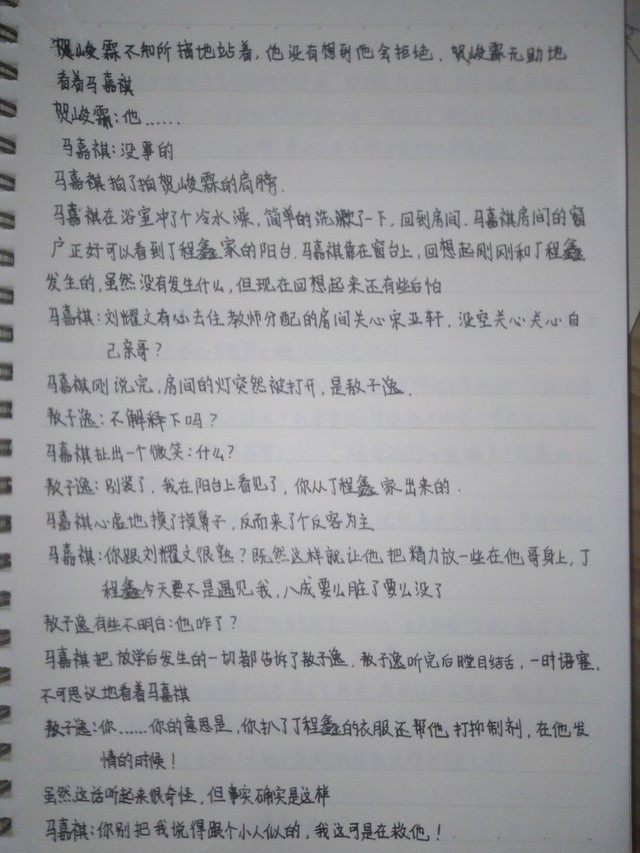 贺峻霖不知所措地站着，他没有想到他会拒绝，贺峻霖无助地
看着马嘉祺
贺峻霖：他……
马嘉祺：没事的
马嘉祺拍了拍贺峻霖的肩膀．
马嘉祺在浴室冲了个冷水澡，简单的洗漱了一下，回到房间．马嘉祺房间的窗
户正好可以看到丁程鑫家的阳台．马嘉祺靠在窗台上，回想起刚刚和丁程鑫
发生的，虽然没有发生什么，但现在回想起来还有些后怕
马嘉祺：刘耀文有心去住教师分配的房间关心宋亚轩，没空关心关心自
己亲哥？
马嘉祺刚说完，房间的灯突然被打开，是敖子逸．
敖子逸：不解释下吗？
马嘉祺扯出一个微笑：什么？
敖子逸：别装了，我在阳台上看见了，你从丁程鑫家出来的．
马嘉祺心虚地摸了摸鼻子，反而来了个反客为主
马嘉祺：你跟刘耀文很熟？既然这样就让他把精力放一些在他哥身上，丁
程鑫今天要不是遇见我，八成要么脏了要么没了
敖子逸有些不明白：他咋了？
马嘉祺把放学后发生的一切都告诉了敖子逸．敖子逸听完后瞠目结舌，一时语塞，
不可思议地看着马嘉祺
敖子逸：你……你的意思是，你扒了丁程鑫的衣服还帮他打抑制剂，在他发
情的时候！
虽然这话听起来很奇怪，但事实确实是这样
马嘉祺：你别把我说得跟个小人似的，我这可是在救他！